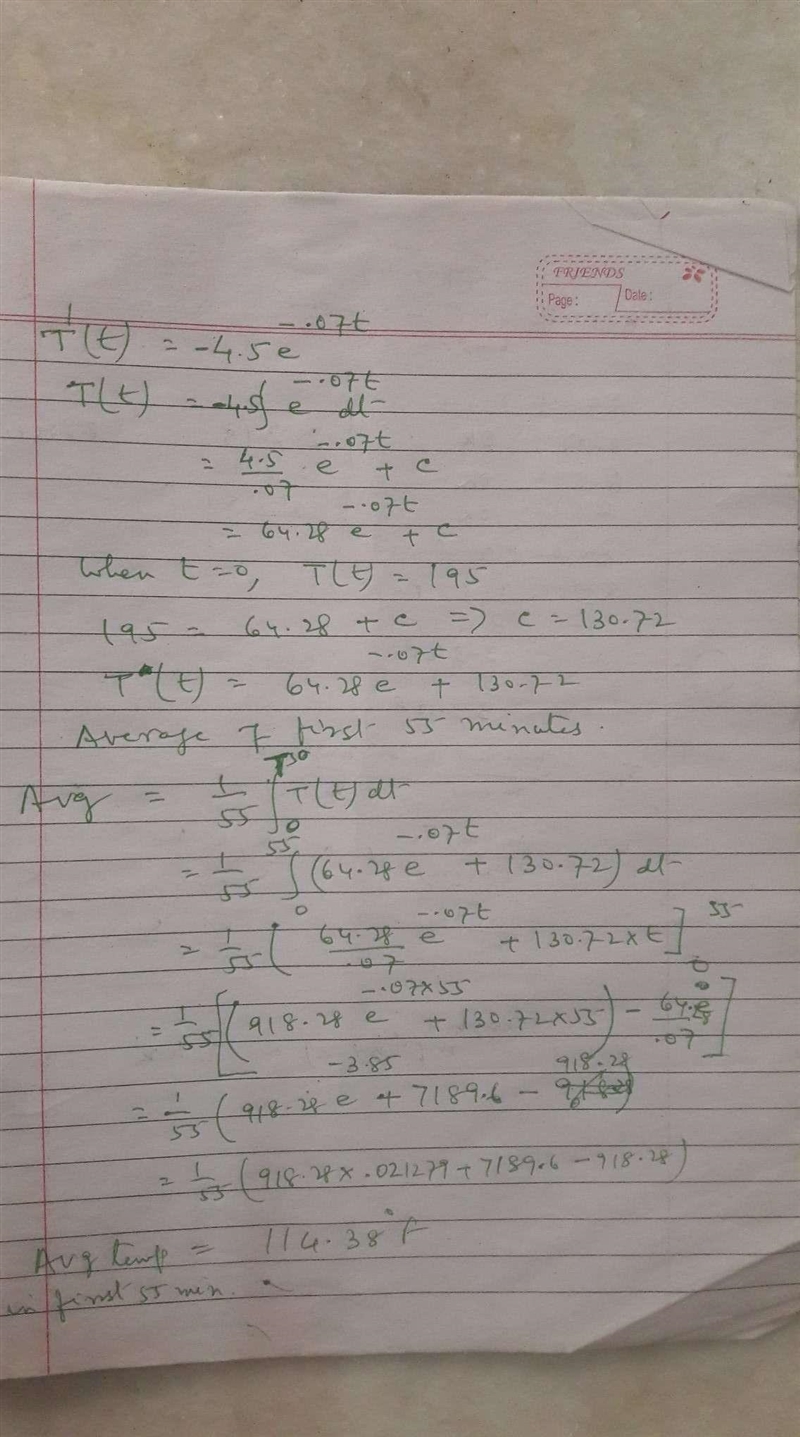 FRIENDS
Page: Date:
T'(t) = -4.5 e^{-.07t}
T(t) = -4.5∫ e^{-.07t} dt
= 4.5/.07 e^{-.07t} + c
= 64.28 e^{-.07t} + c
When t=0, T(t) = 195
195 = 64.28 + c => c = 130.72
T(t) = 64.28 e^{-.07t} + 130.72
Average of first 55 minutes.
Avg = 1/55 ∫_0 T(t) dt
= 1/55 ∫_0^{55} (64.28 e^{-.07t} + 130.72) dt
= 1/55 [ 64.28/.07 e^{-.07t} + 130.72×t ]_0^{55}
= 1/55 [ (918.28 e^{-.07×55} + 130.72×55) - 64.28/.07 e^0 ]
= 1/55 (918.28 e^{-3.85} + 7189.6 - 918.28)
= 1/55 (918.28×.021279 + 7189.6 - 918.28)
Avg temp = 114.38°F
in first 55 min.